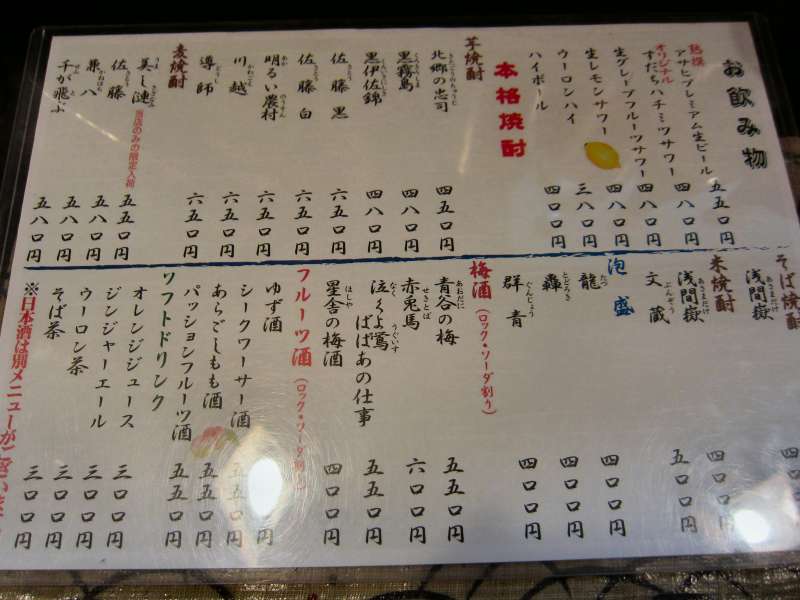 お飲み物
熟撰
アサヒプレミアム生ビール 五五〇円
オリジナル
すだちハチミツサワー 四八〇円
生グレープフルーツサワー 四八〇円
生レモンサワー 四八〇円
ウーロンハイ 三八〇円
ハイボール 四〇〇円
本格焼酎
芋焼酎
北郷の忠司 四五〇円
黒霧島 四八〇円
黒伊佐錦 四八〇円
佐藤 黒 六五〇円
佐藤 白 六五〇円
明るい農村 六五〇円
川越 五五〇円
導師 六五〇円
麦焼酎
美し漣 当店のみの限定入荷 五五〇円
佐藤 五八〇円
兼八 五八〇円
千が飛ぶ 五八〇円
そば焼酎
浅間嶽 四〇〇円
米焼酎
浅間嶽 四〇〇円
文蔵 五〇〇円
泡盛
龍 四〇〇円
轟 四〇〇円
群青 四〇〇円
梅酒(ロック・ソーダ割り)
青谷の梅 五五〇円
赤兎馬 六〇〇円
泣くよ鶯 ばばあの仕事 五五〇円
星舎の梅酒 四〇〇円
フルーツ酒(ロック・ソーダ割り)
ゆず酒
シークワーサー酒 五五〇円
あらごしもも酒 五五〇円
パッションフルーツ酒 五五〇円
ソフトドリンク
オレンジジュース 三〇〇円
ジンジャーエール 三〇〇円
ウーロン茶 三〇〇円
そば茶 三〇〇円
※日本酒は別メニューがござい